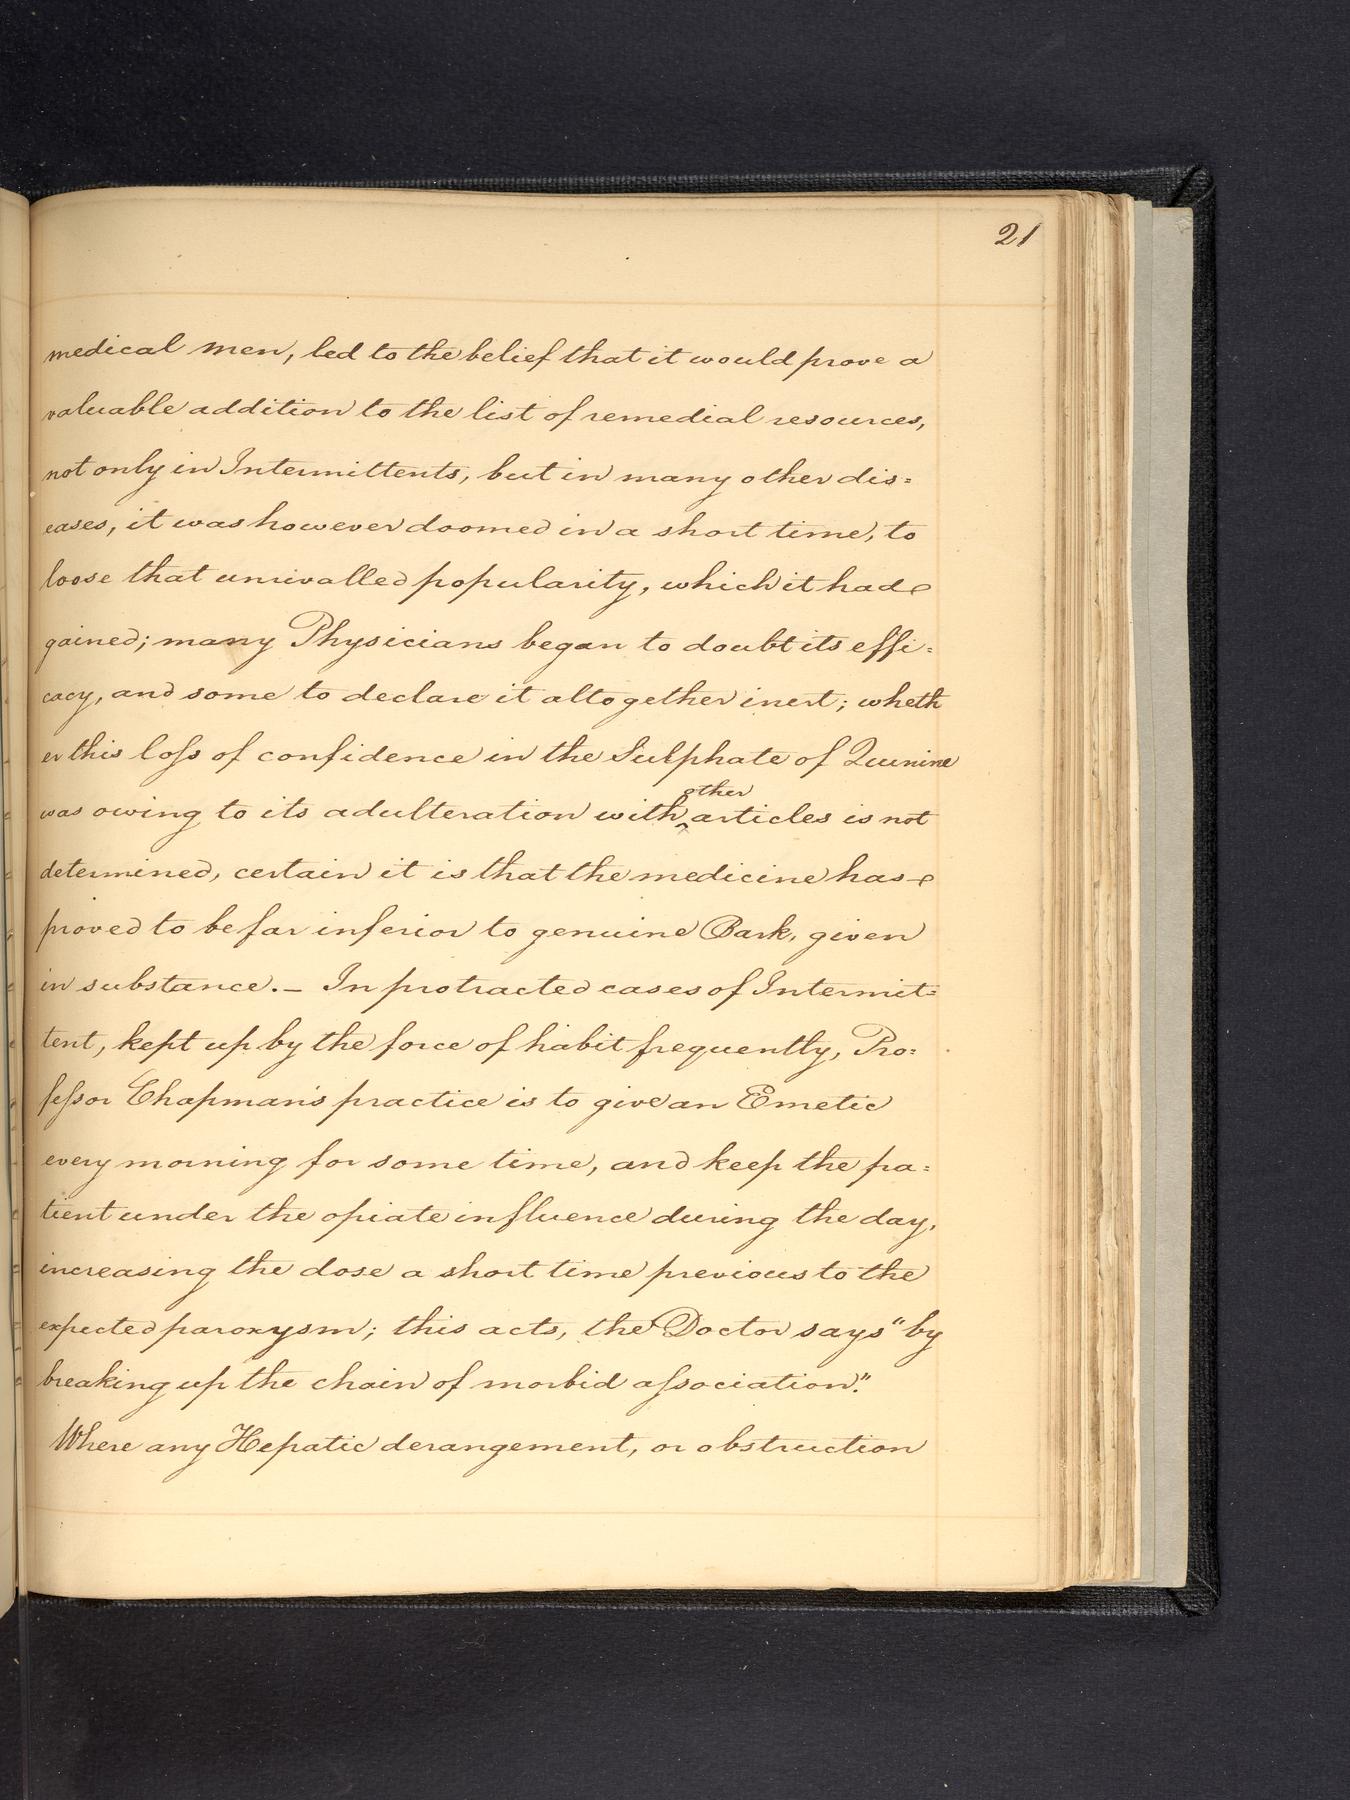 21
medical men, led to the belief that it would prove a
valuable addition to the list of remedial resources,
not only in Intermittents, but in many other dis=
eases, it was however doomed in a short time, to
loose that unrivalled popularity, which it had
gained; many Physicians began to doubt its effi=
cacy, and some to declare it altogether inert; wheth
er this loſs of confidence in the Sulphate of Quinine
other
was owing to its adulteration with ‸ articles is not
determined, certain it is that the medicine has
proved to be far inferior to genuine Bark, given
in substance. – In protracted cases of Intermit=
tent, kept up by the force of habit frequently, Pro=
feſsor Chapman's practice is to give an Emetic
every morning for some time, and keep the pa=
tient under the opiate influence during the day,
increasing the dose a short time previous to the
expected paroxysm; this acts, the Doctor says "by
breaking up the chain of morbid aſsociation."
Where any Hepatic derangement, or obstruction